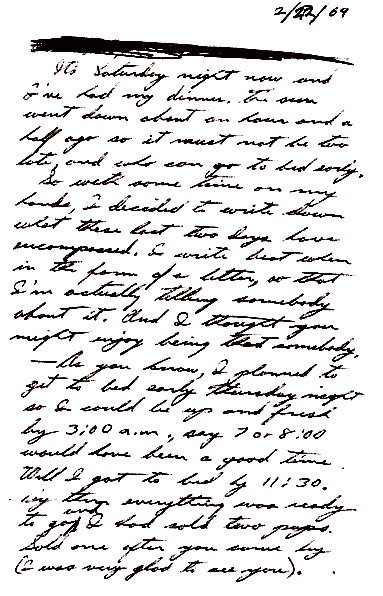 2/22/69
It's Saturday night now and
I've had my dinner. The sun
went down about an hour and a
half ago so it must not be too
late, and who can go to bed early.
So with some time on my
hands, I decided to write down
what these last two days have
encompassed. I write best when
in the form of a letter, so that
I'm actually telling somebody
about it. And I thought you
might enjoy being that somebody.
— As you know, I planned to
get to bed early thursday night
so I could be up and fresh
by 3:00 a.m., say 7 or 8:00
would have been a good time.
Well I got to bed by 11:30.
By then everything was ready
to go and I had sold two pups.
Sold one after you came by
(I was very glad to see you).